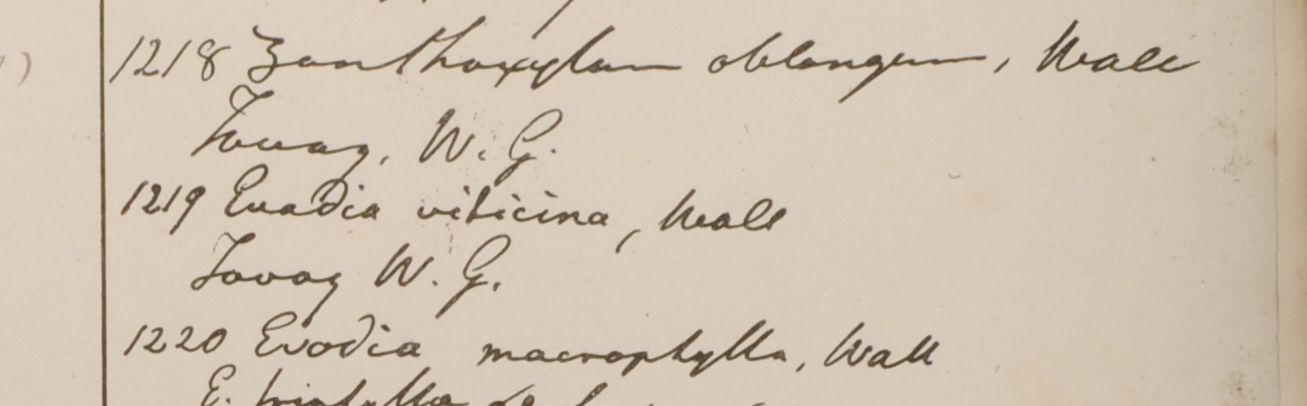 1218 Zanthoxylum oblongum, Wall
Tavoy, W. G.
1219 Evadia viticina, Wall
Tavoy W. G.
1220 Evodia macrophylla, Wall
E. triphylla